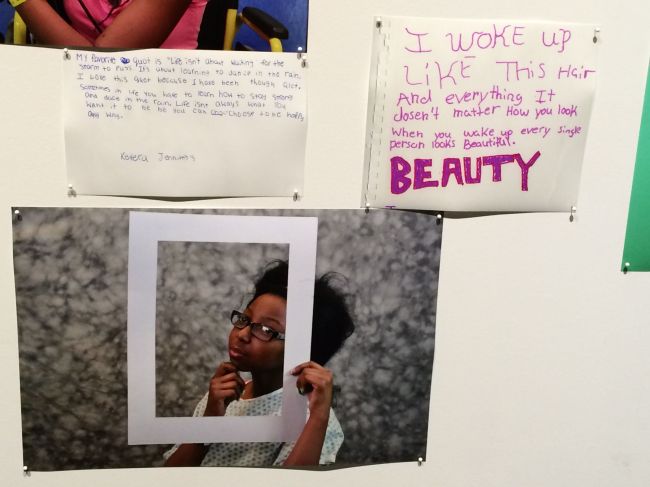 My favorite quot is "Life isn't about waiting for the
storm to pass. It's about learning to dance in the rain.
I love this quot because I have been though alot.
Sometimes in life you have to learn how to stay strong
and dace in the rain. Life isnt always what you
want it to be be you can choose to be happy
any way.
Jennings
I WOKE UP
LIKE THIS Hair
And everything It
dosen't matter How you look
When you wake up every single
person looks Beautiful.
BEAUTY